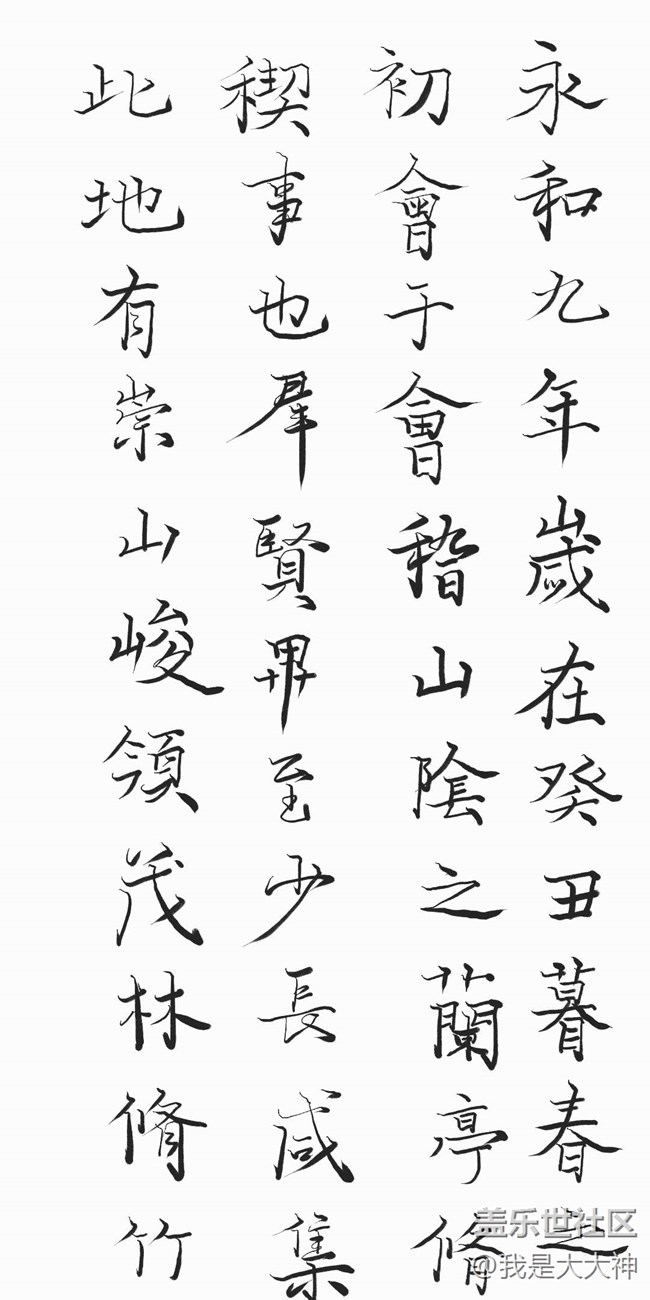 永和九年歲在癸丑暮春之
初會于會稽山陰之蘭亭脩
稧事也羣賢畢至少長咸集
此地有崇山峻領茂林脩竹
盖乐世社区
@我是大大神